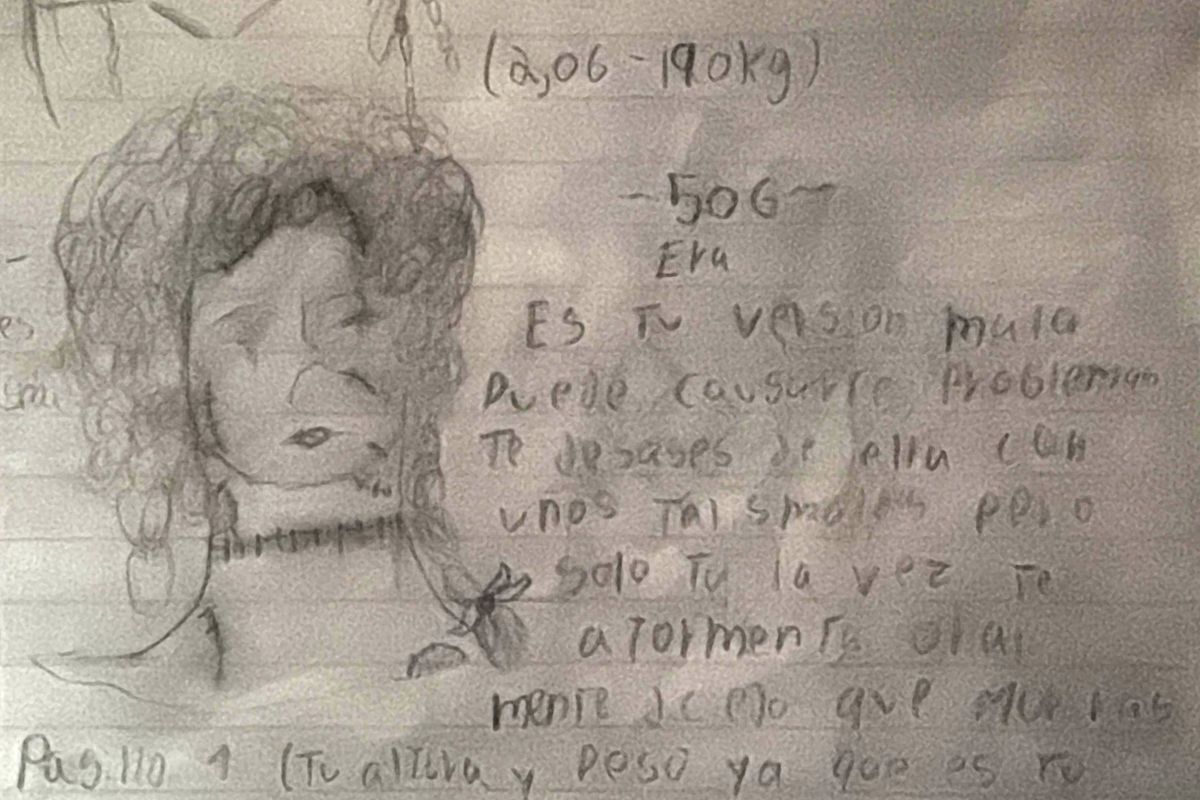 (2,06-190kg)
-506-
Eva
Es Tu version mala
Puede causarte problemas
es
Te desases de ella con
unos Talismanes pero
solo Tu la ves Te
atormenta oral
mente deseo que mueras
Pasillo 1 (Tu altura y peso ya que es tu